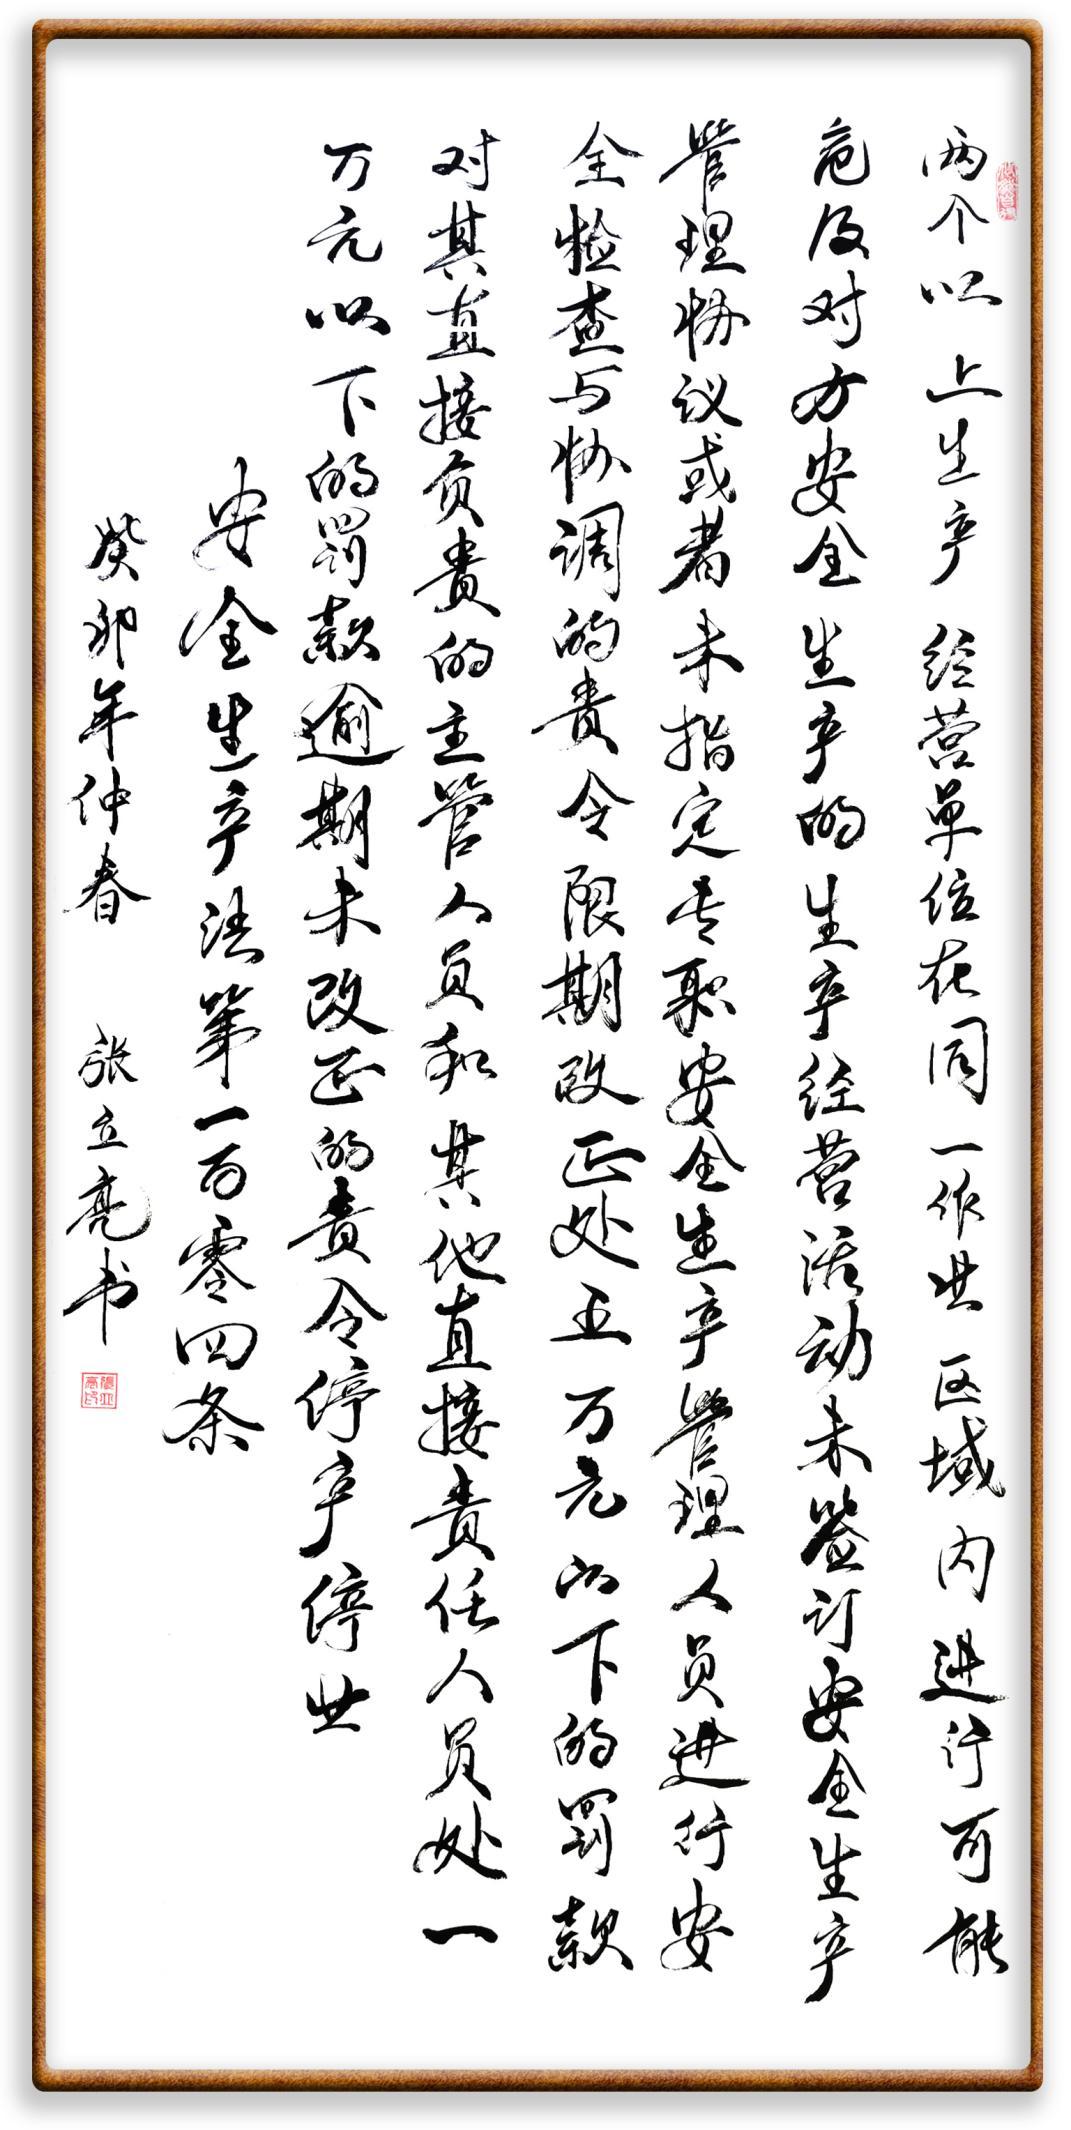 两个以上生产经营单位在同一作业区域内进行可能
危及对方安全生产的生产经营活动未签订安全生产
管理协议或者未指定专职安全生产管理人员进行安
全检查与协调的责令限期改正处五万元以下的罚款
对其直接负责的主管人员和其他直接责任人员处一
万元以下的罚款逾期未改正的责令停产停业
安全生产法第一百零四条
癸卯年仲春 张立亮书